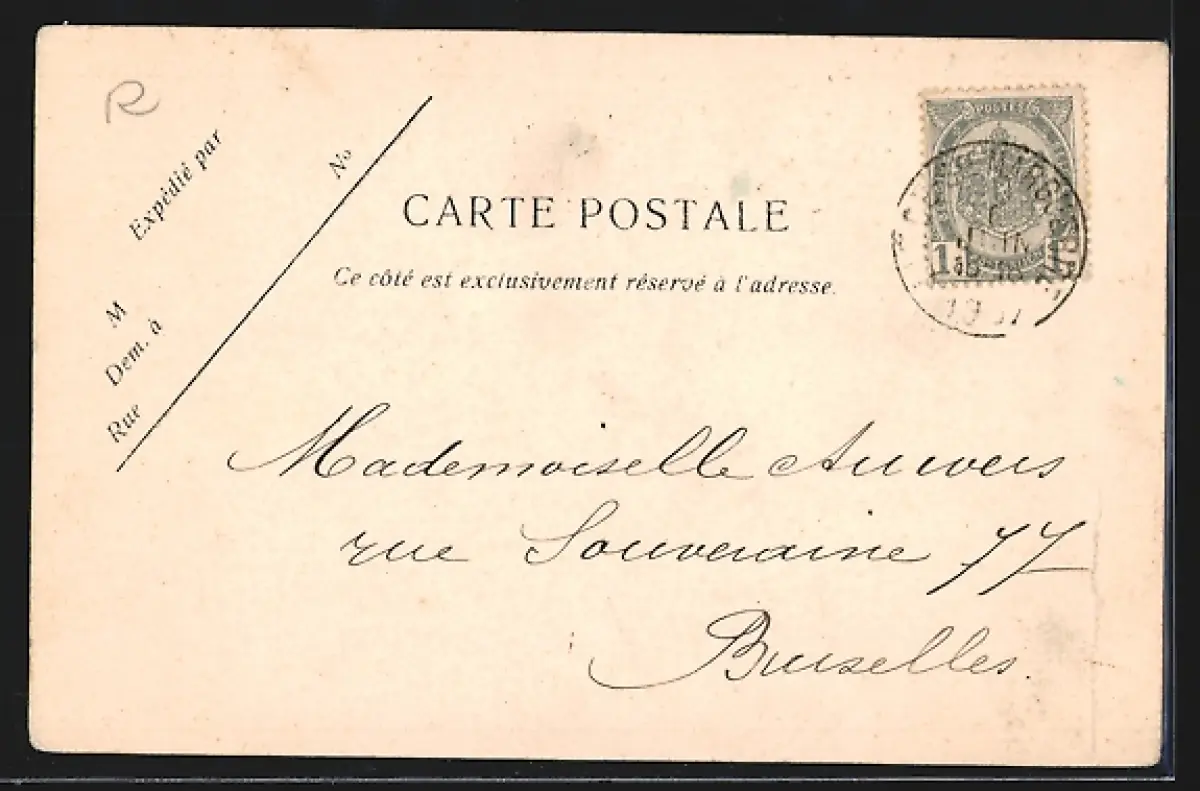 R
Expédié par
No
M
Dem. à
Rue
CARTE POSTALE
Ce côté est exclusivement réservé à l'adresse.
POSTES
1
JUIN
Mademoiselle Auwers
rue Souveraine 77
Bruxelles.